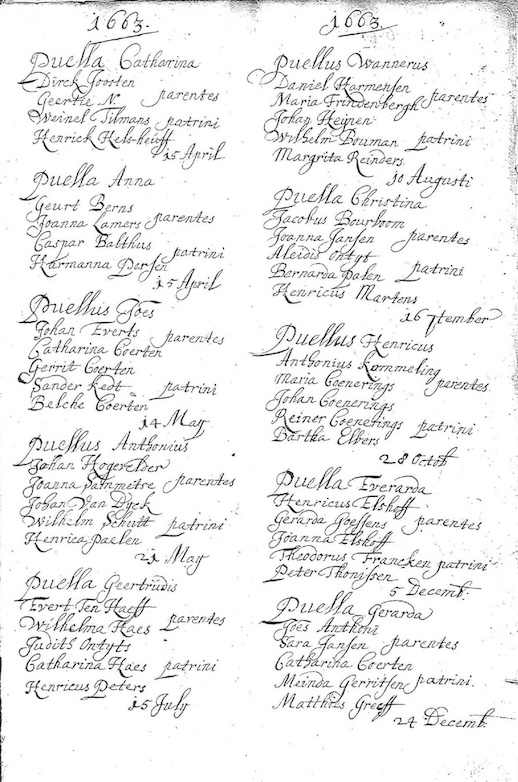 1663.
Puella Catharina
Dirck Joosten
Geertie N. parentes
Weinel Tilmans patrini
Henrick Hels-heuff
15 April
Puella Anna
Geurt Berns
Joanna Lamers parentes
Caspar Balthus
Harmanna Dorsen patrini
15 April
Puellus Joes
Johan Everts parentes
Catharina Coerten
Gerrit Coerten
Sander Kedt patrini
Belche Coerten
14 May
Puellus Anthonius
Johan Hogevelder
Joanna parentes
Johan Van Dyck
Wilhelm Schutt patrini
Henrica Paelen
21 May
Puella Geertrudis
Evert Ten Haeff
Wilhelma Haes parentes
Judith Ontyts
Catharina Haes patrini
Henricus Peters
15 July
1663.
Puellus Wannerus
Daniel Harmensen
Maria Frindenbergh parentes
Johan Heijnen
Wilhelm Bouman patrini
Margrita Reinders
10 Augusti
Puella Christina
Jacobus Bourbom
Joanna Jansen parentes
Aleidis Ontyt
Bernarda Palen patrini
Henricus Martens
16 7tember
Puellus Henricus
Anthonius Rommeling
Maria Coenerings parentes
Johan Coenerings
Reiner Coenerings patrini
Bartha Elbers
28 Octob
Puella Everarda
Henricus Elshoff
Gerarda Goessens parentes
Joanna Elshoff
Theodorus Francken patrini
Peter Thonissen
5 Decemb.
Puella Gerarda
Joes Anthoni
Sara Jansen parentes
Catharina Coerten
Meinda Gerritsen patrini.
Matthus Greeff
24 Decemb.